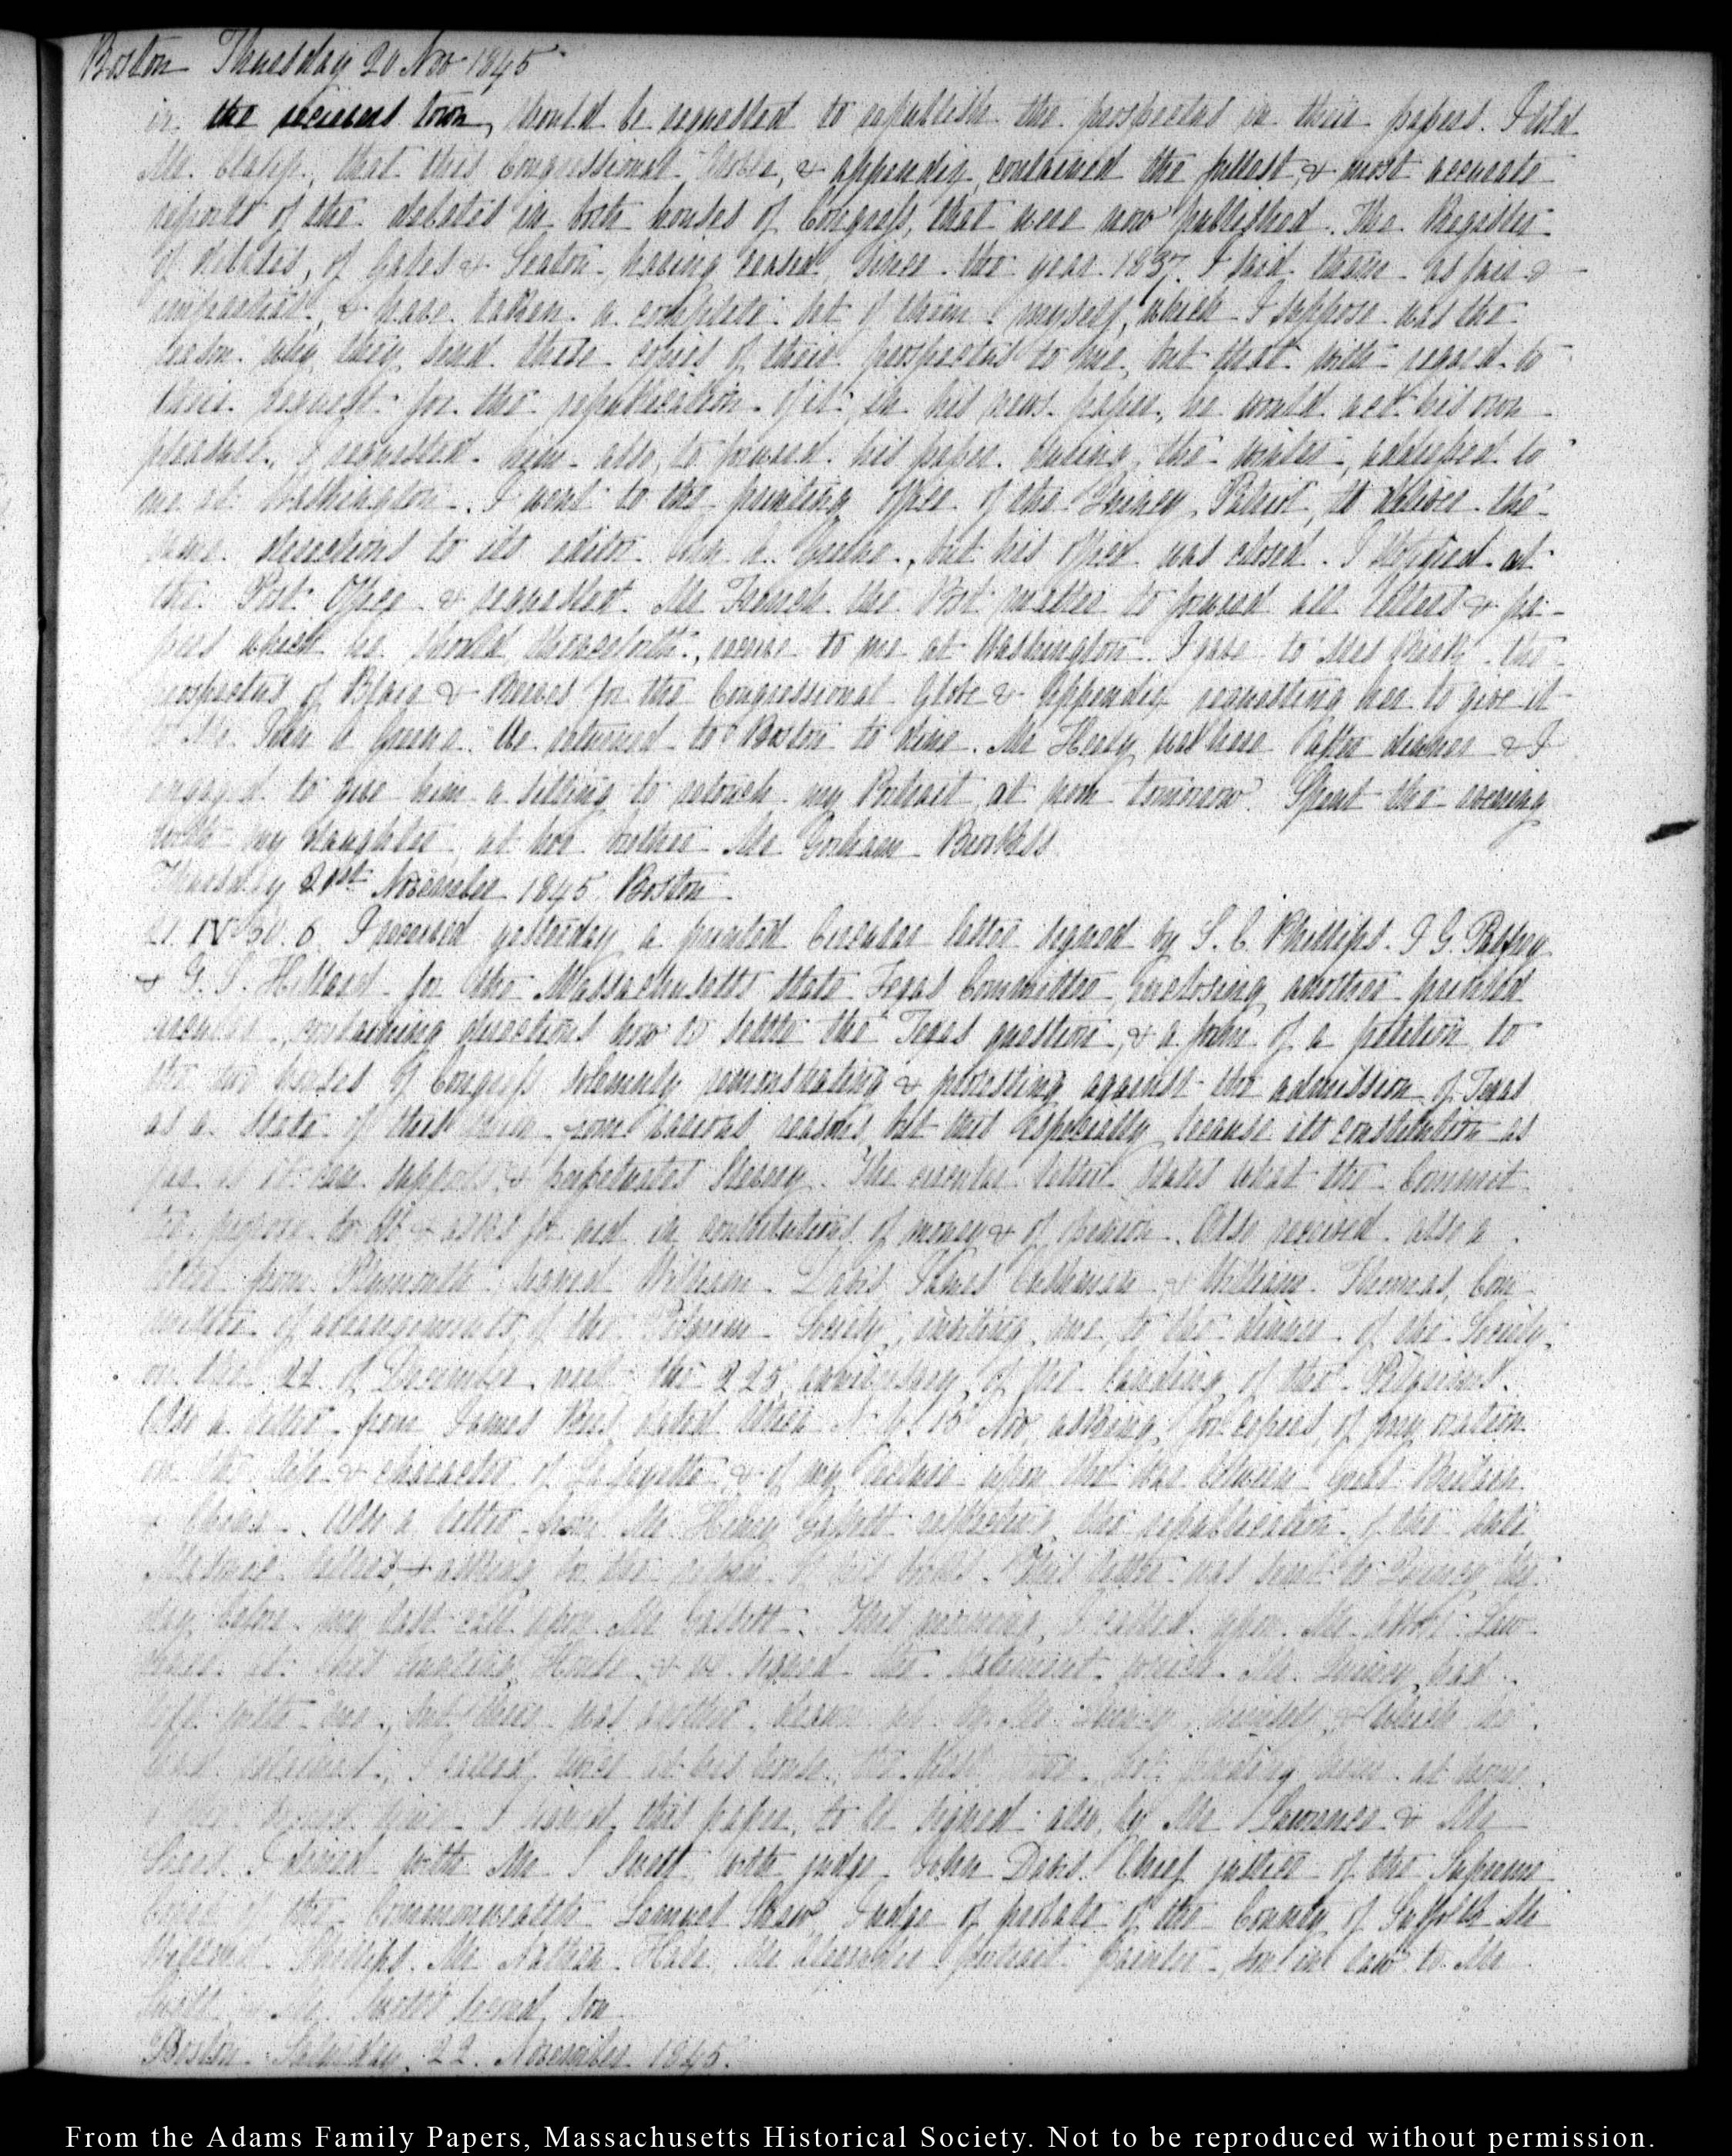 Boston Thursday 20 Nov 1845
in the several town, should be requested to republish the prospectus in their papers. I told
Mr. Clapp, that this Congressional Globe, & appendix, contained the fullest, & most accurate
reports of the debates in both houses of Congress, that were now published. The Register
of debates, of Gales & Seaton having ceased since the year 1837. I said them as fair &
impartial, & have taken a complete set of them myself, which I suppose was the
reason why they send these copies of their prospectus to me, but that with regard to
their request for the republication of it in his news paper, he would act his own
pleasure. I requested him also, to forward his paper during the winter, addressed to
me at Washington. I went to the printing office of the Quincy Patriot, to deliver the
same directions to its editor John A. Greene, but his office was closed. I stopped at
the Post Office & requested Mr French the Post master to forward all letters & pa-
pers which he should thenceforth, receive to me at Washington. I gave to Mrs the
prospectus of Blair & Reeves for the Congressional Globe & Appendix requesting her to give it
to Mr. John A Greene. We returned to Boston to dine. Mr Healy was here after dinner & I
engaged to give him a sitting to retouch my Portrait at noon tomorrow. Spent the evening
with my daughter, at her brother Mr Gorham Brooks's
Thursday 21st November 1845. Boston
21. IV 30. 6 I received yesterday a printed Circular letter signed by S. C. Phillips. J G. Palfrey
& G. S. Hillard for the Massachusetts State Texas Committee, enclosing another printed
circular, containing directions how to settle the Texas question, & a form of a petition to
the two houses of Congress solemnly remonstrating & protesting against the admission of Texas
as a State of this Union various reasons but this especially because its constitution as
far as it can supports & perpetuates Slavery. The circular letter states what the Commit
tee propose to do & asks for aid in contributions of money & of opinion. Also received also a
letter from Plymouth, signed William Davis, James Cushman & William Thomas, Com
mittee of arrangements of the Pilgrim Society, inviting me to the dinner of the Society
on the 22 of December next the 225 anniversary of the landing of the Pilgrims.
Also a letter from James Rees dated Utica N. Y. 15 Nov asking for copies of my oration
on the life & character of La Fayette & of my lecture upon the war between great Britain
& China. Also a letter from Mr Henry Gassett respecting the republication of the late
Masonic letters & asking for the return of his books. This letter was sent to Quincy the
day before my last call upon Mr Gassett. This morning I called upon Mr Abbott Law-
rence at his Counting House & we signed the statement which Mr. Quincy had
left with me, but there was another drawn up by Mr Quincy himself & which he
had retained. I called twice at his house, the first time not finding him at home,
the second time I signed this paper, to be signed also by Mr Lawrence & Mr
Sears. I dined with Mr S Swett, with judge John Davis. Chief justice of the Supreme
Court of the Commonwealth Lemuel Shaw, Judge of probate of the County of Suffolk Mr
Willard Phillips. Mr Nathan Hale, Mr Alexander portrait painter, son in law to Mr
Swett & Mr. Swett's second son
Boston Saturday, 22. November 1845.
From the Adams Family Papers, Massachusetts Historical Society. Not to be reproduced without permission.